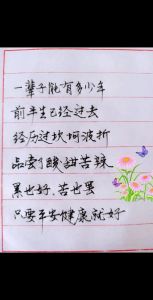 一辈子能有多少年
前半生已经过去
经历过坎坷波折
品尝了酸甜苦辣
累也好,苦也罢
只要平安健康就好